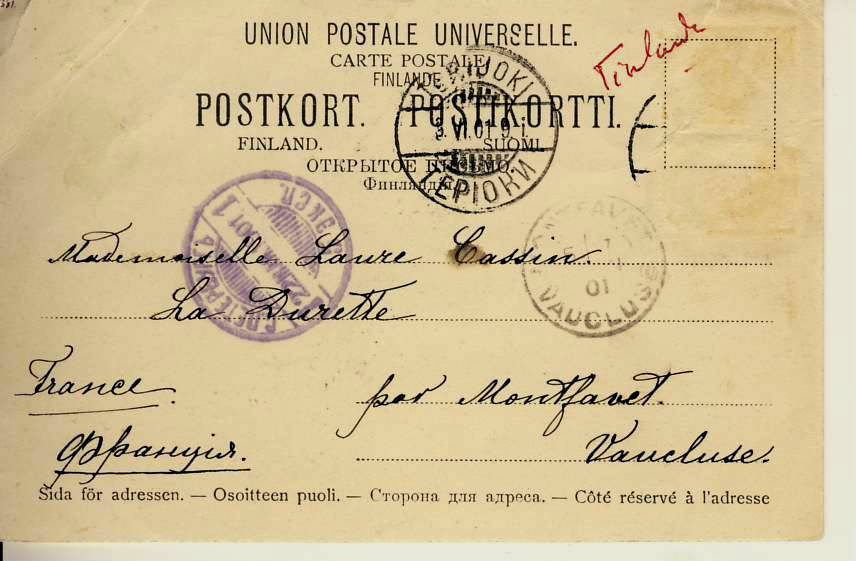 UNION POSTALE UNIVERSELLE.
CARTE POSTALE
FINLANDE
Finlande
POSTKORT. POSTIKORTTI.
FINLAND. SUOMI
ОТКРЫТОЕ ПИСЬМО
Финляндія
TERIJOKI
3.VI.01
ТЕРІОКИ
Mademoiselle Laure Cassin.
La Durette
MONTFAVET
01
VAUCLUSE
France. par Montfavet.
Франція. Vaucluse.
Sida för adressen. — Osoitteen puoli. — Сторона для адреса. — Côté réservé à l'adresse